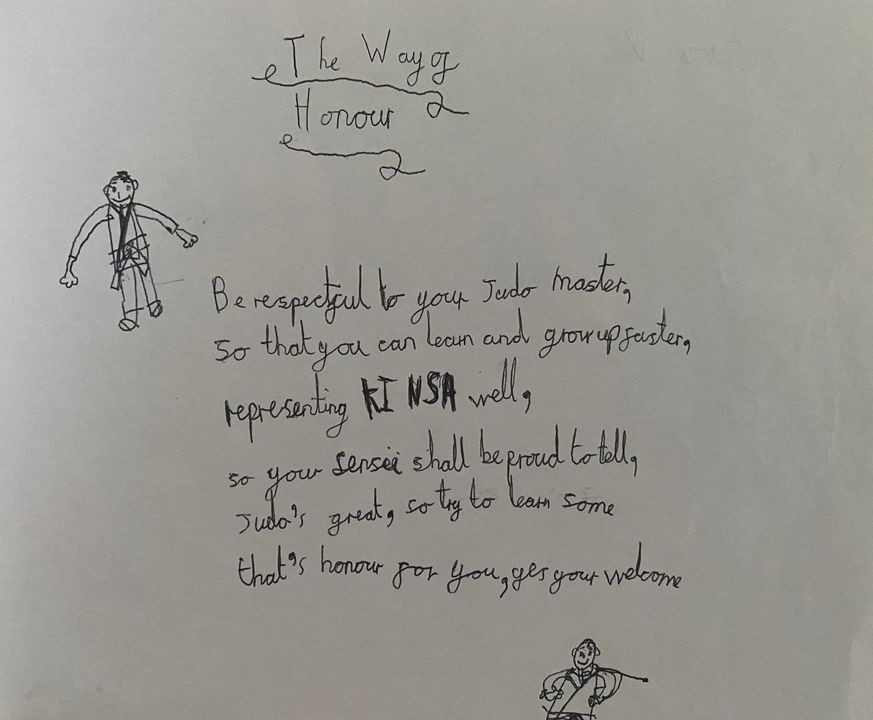 The Way of
Honour
Be respectful to your Judo master,
So that you can learn and grow up faster,
representing KINSA well,
so your sensei shall be proud to tell,
Judo's great, so try to learn some
that's honour for you, yes your welcome